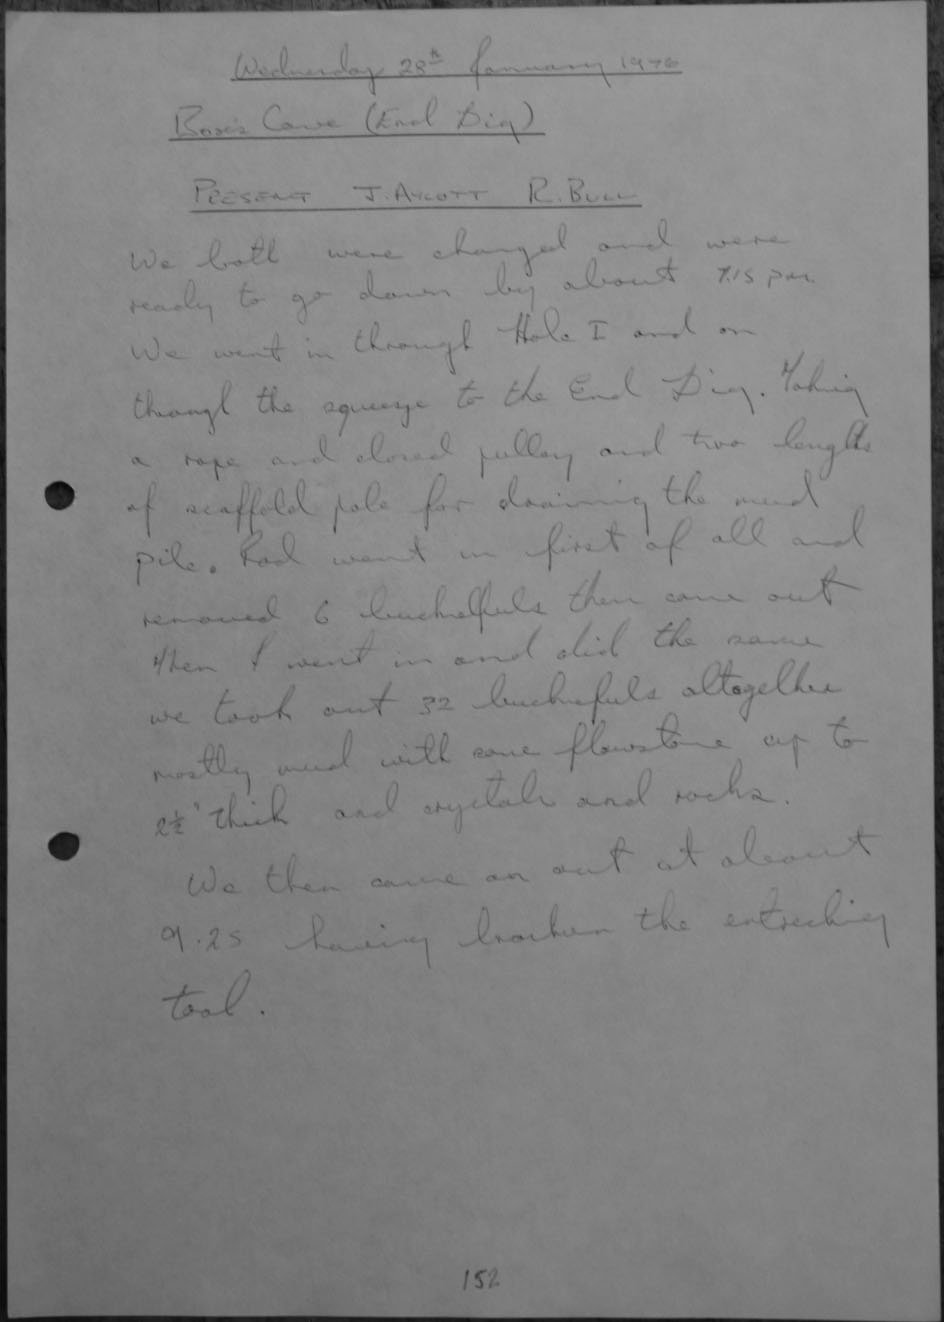 Wednesday 28th January 1976
Bose's Cave (End Dig)
PRESENT J. AYCOTT R. BULL
We both were changed and were
ready to go down by about 7.15 pm.
We went in through Hole I and on
through the squeeze to the End Dig. Taking
a rope and closed pulley and two lengths
of scaffold pole for draining the mud
pile. Rod went in first of all and
removed 6 bucketfuls then came out
then I went in and did the same
we took out 32 bucketfuls altogether
mostly mud with some flowstone up to
2½" thick and crystals and rocks.
We then came on out at about
9.25 having broken the entreching
tool.
152